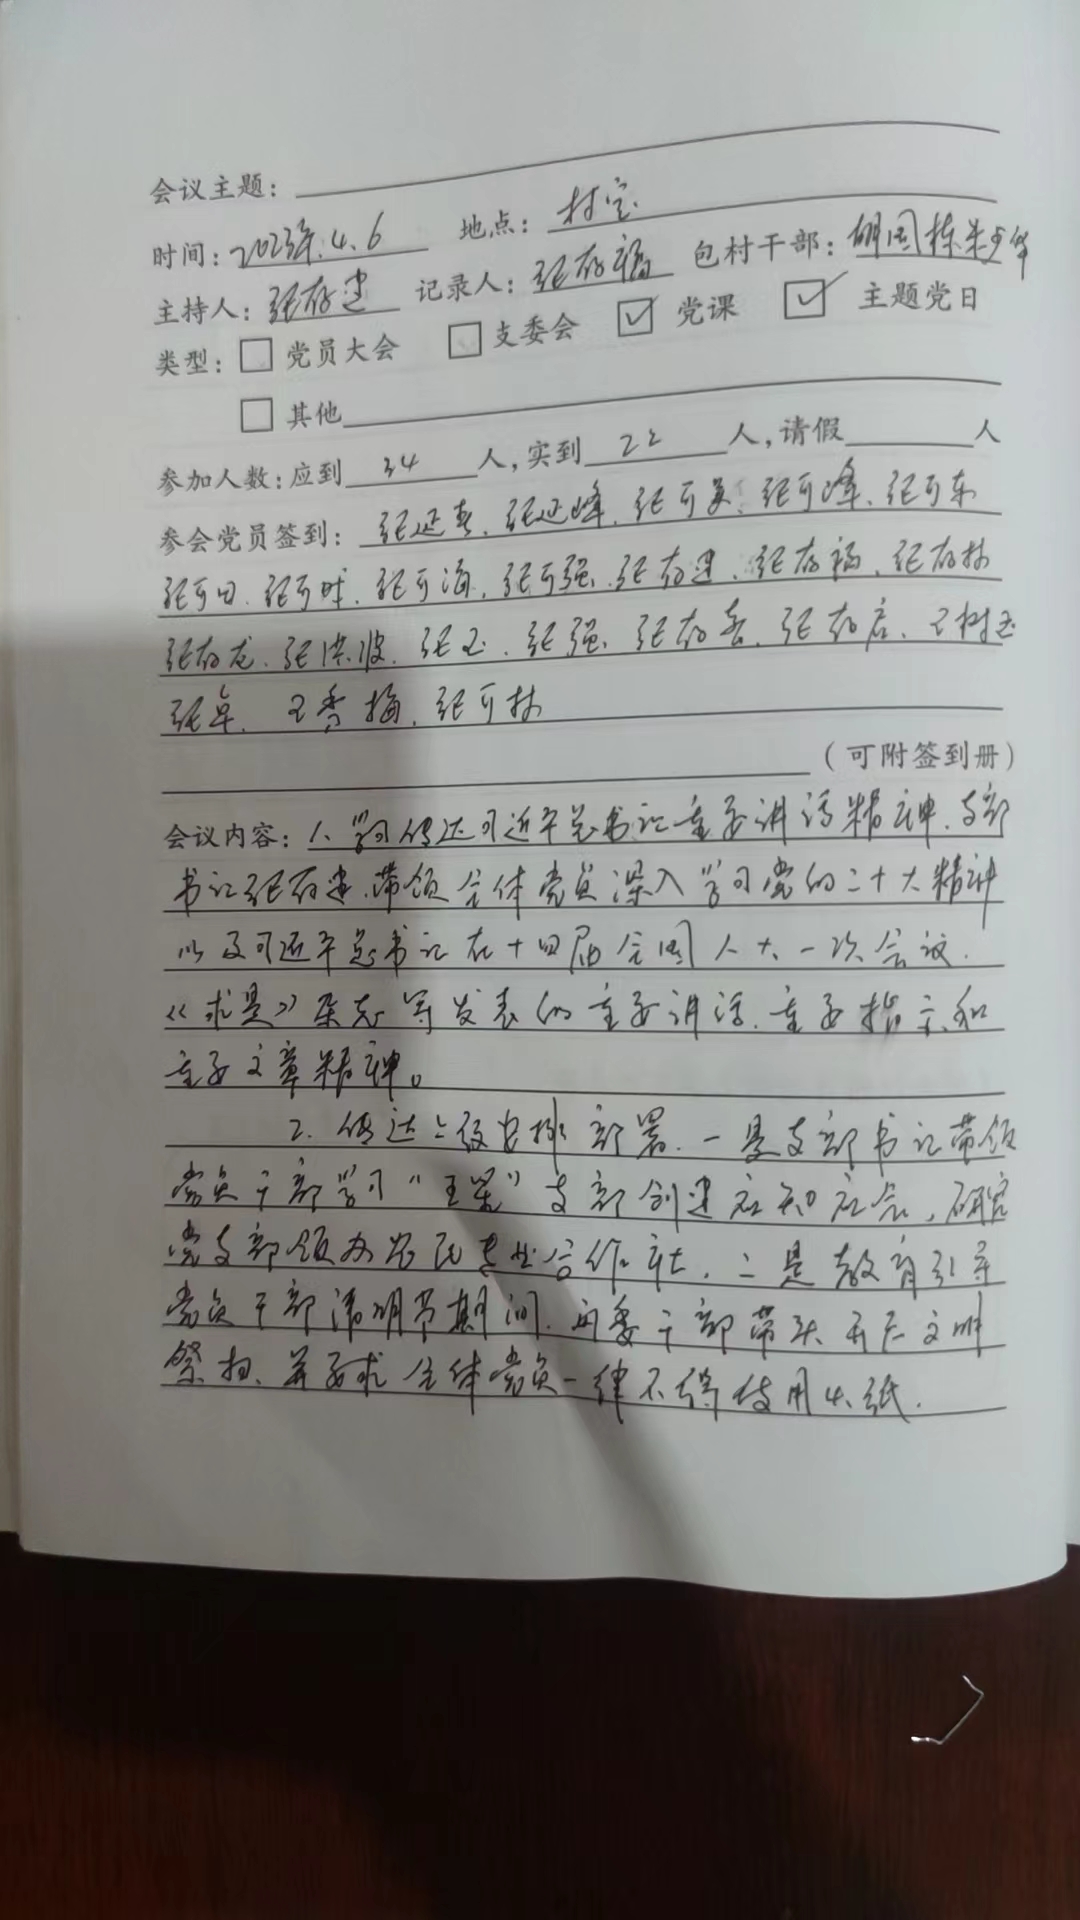 会议主题：
时间：2023年.4.6 地点：村室
主持人：张存建 记录人：张存福 包村干部：胡国栋 朱
类型：□党员大会 □支委会 ☑党课 ☑主题党日
□其他
参加人数：应到 34 人，实到 22 人，请假 人
参会党员签到：张延春、张延峰、张可美、张可峰、张可东
张可日、张可时、张可海、张可强、张存建、张存福、张存林
张存龙、张洪波、张玉、张强、张存喜、张存启、王树玉
张卓、王香梅、张可林
（可附签到册）
会议内容：1、学习传达习近平总书记重要讲话精神、支部
书记张存建、带领全体党员深入学习党的二十大精神
以及习近平总书记在十四届全国人大一次会议、
《求是》杂志等发表的重要讲话、重要指示和
重要文章精神。
2、传达上级安排部署、一是支部书记带领
党员干部学习“五星”支部创建应知应会，研究
党支部领办农民专业合作社，二是教育引导
党员干部清明节期间、两委干部带头开展文明
祭扫、并要求全体党员一律不得使用火纸.